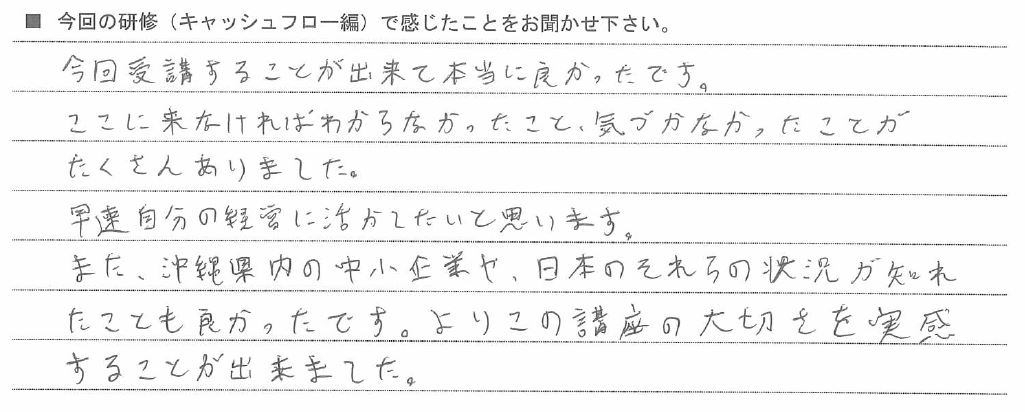 ■ 今回の研修（キャッシュフロー編）で感じたことをお聞かせ下さい。
今回受講することが出来て本当に良かったです。
ここに来なければわからなかったこと、気づかなかったことが
たくさんありました。
早速自分の経営に活かしたいと思います。
また、沖縄県内の中小企業や、日本のそれらの状況が知れ
たことも良かったです。よりこの講座の大切さを実感
することが出来ました。